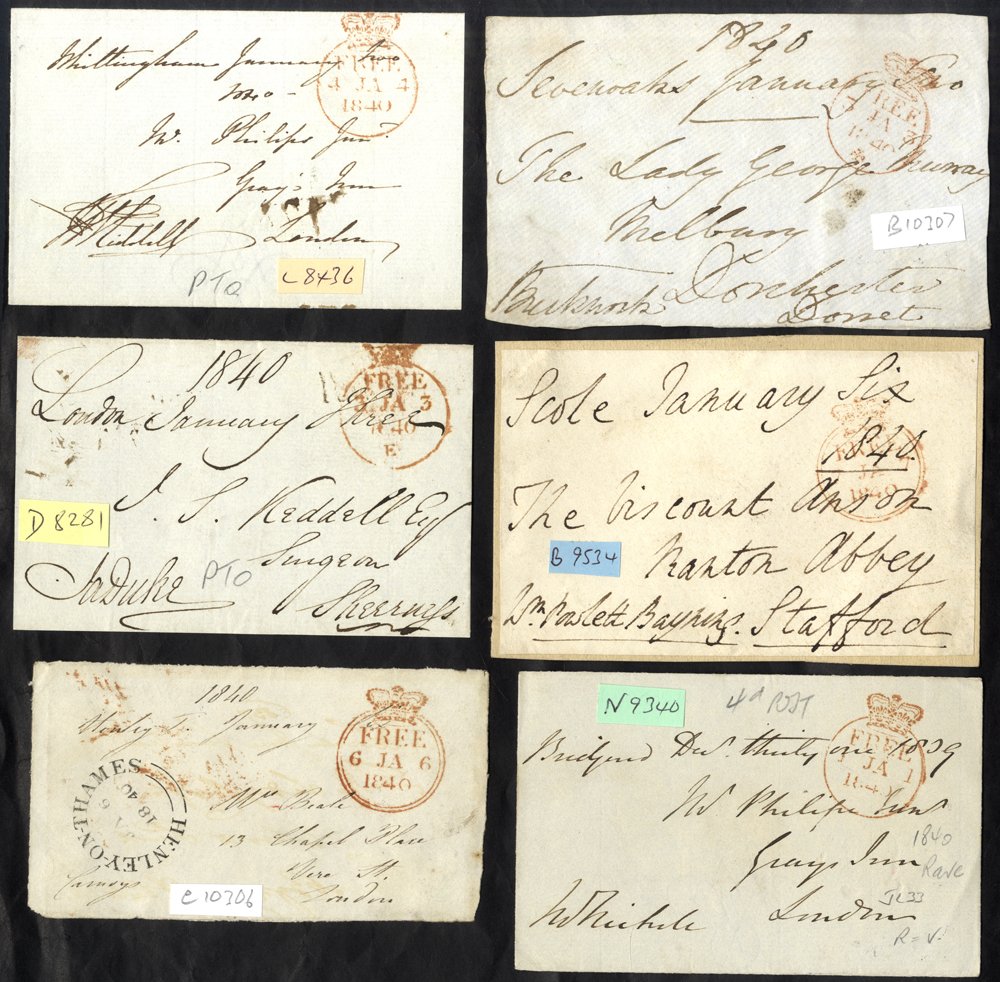 Whittingham January Two
1840
Mr. Philips Junr.
Gray's Inn
London
FREE
4 JA 4
1840
PTO
L8436
1840
Sevenoaks January Two
The Lady George Murray
Melbury
Dorchester
Dorset
FREE
JA
1840
B10307
1840
London January Three
J. S. Keddell Esq
Surgeon
Sheerness
FREE
3 JA 3
1840
E
D8281
PTO
Scole January Six
1840.
The Viscount Anson
Ranton Abbey
Stafford
Wm Powlett
FREE
JA
1840
B 9534
1840
Henley January
Mrs Beale
13 Chapel Place
Vere St.
London
Camoys
FREE
6 JA 6
1840
HENLEY-ON-THAMES
JA 6
1840
C10306
N9340
4d POST
Bridgend Decr. thirty one 1839
Mr Philips Junr
Grays Inn
London
FREE
1 JA 1
1840
1840
Rare
R=V.